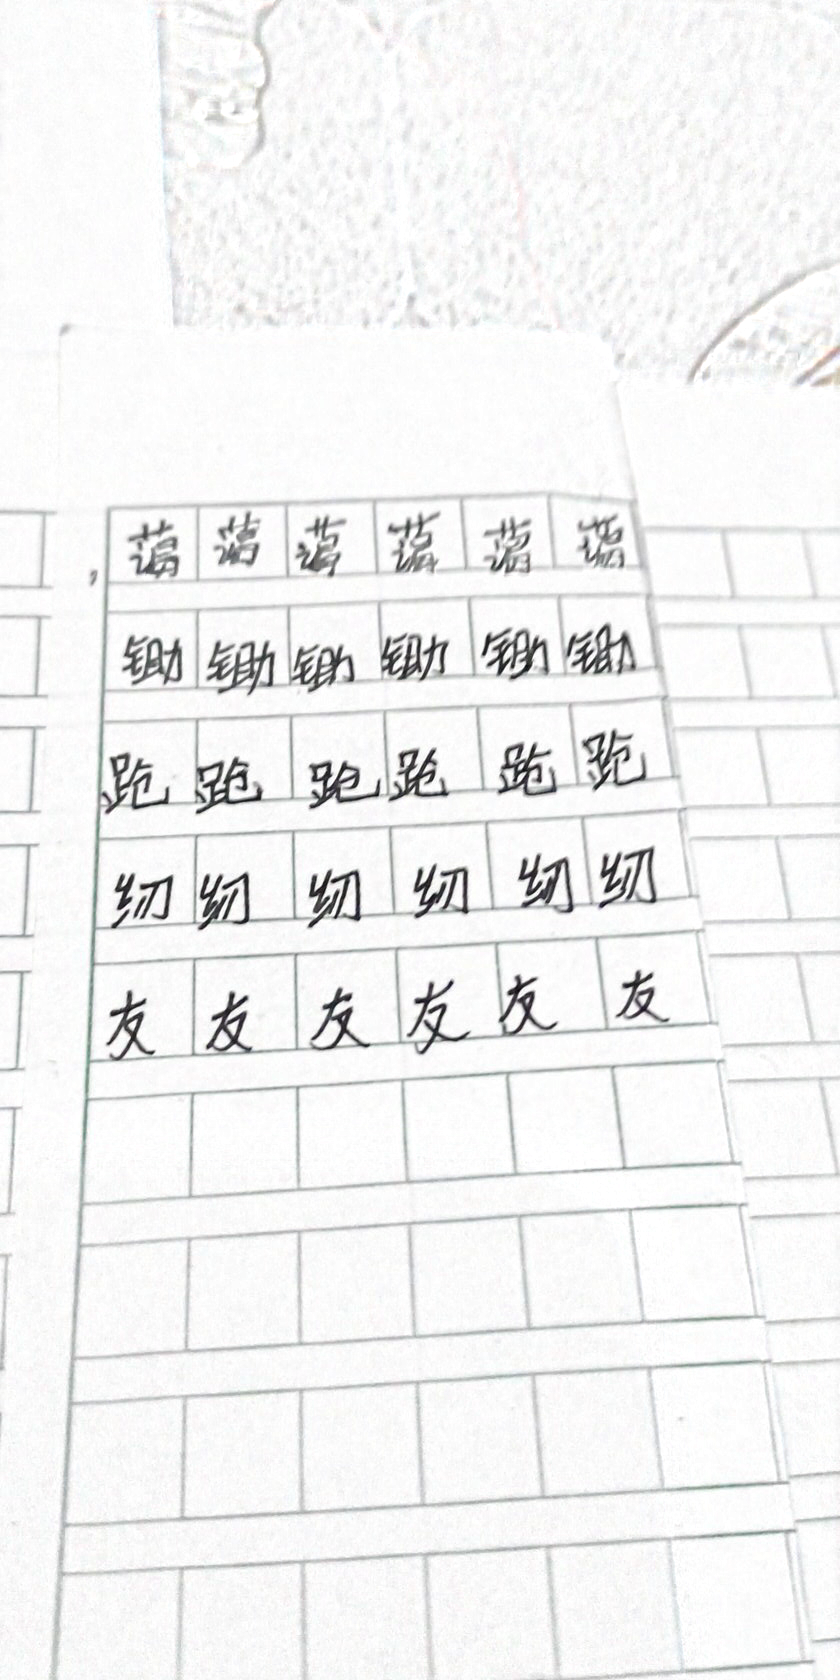 蔼蔼蔼蔼蔼蔼
锄锄锄锄锄锄
跑跑跑跑跑跑
纫纫纫纫纫纫
友友友友友友